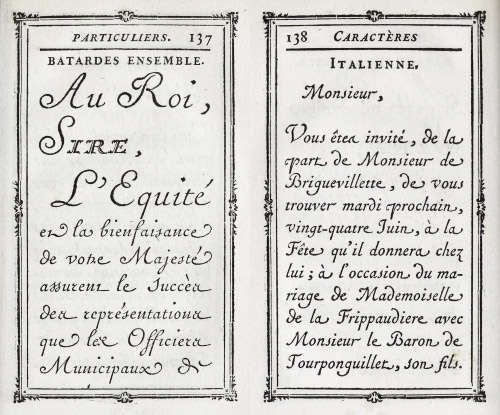 PARTICULIERS. 137
BATARDES ENSEMBLE.
Au Roi,
SIRE,
L'Equité
et la bienfaisance
de votre Majesté
assurent le Succès
des représentations
que les Officiers
Municipaux de
138 CARACTÈRES
ITALIENNE.
Monsieur,
Vous êtes invité, de la
part de Monsieur de
Briguevillette, de vous
trouver mardi prochain,
vingt-quatre Juin, à la
Fête qu'il donnera chez
lui ; à l'occasion du ma-
riage de Mademoiselle
de la Frippaudiere avec
Monsieur le Baron de
Tourponguillet, son fils.